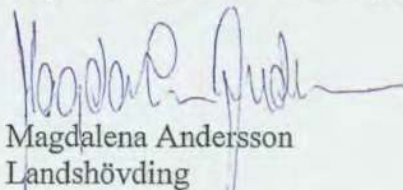 Magdalena Andersson
Landshövding